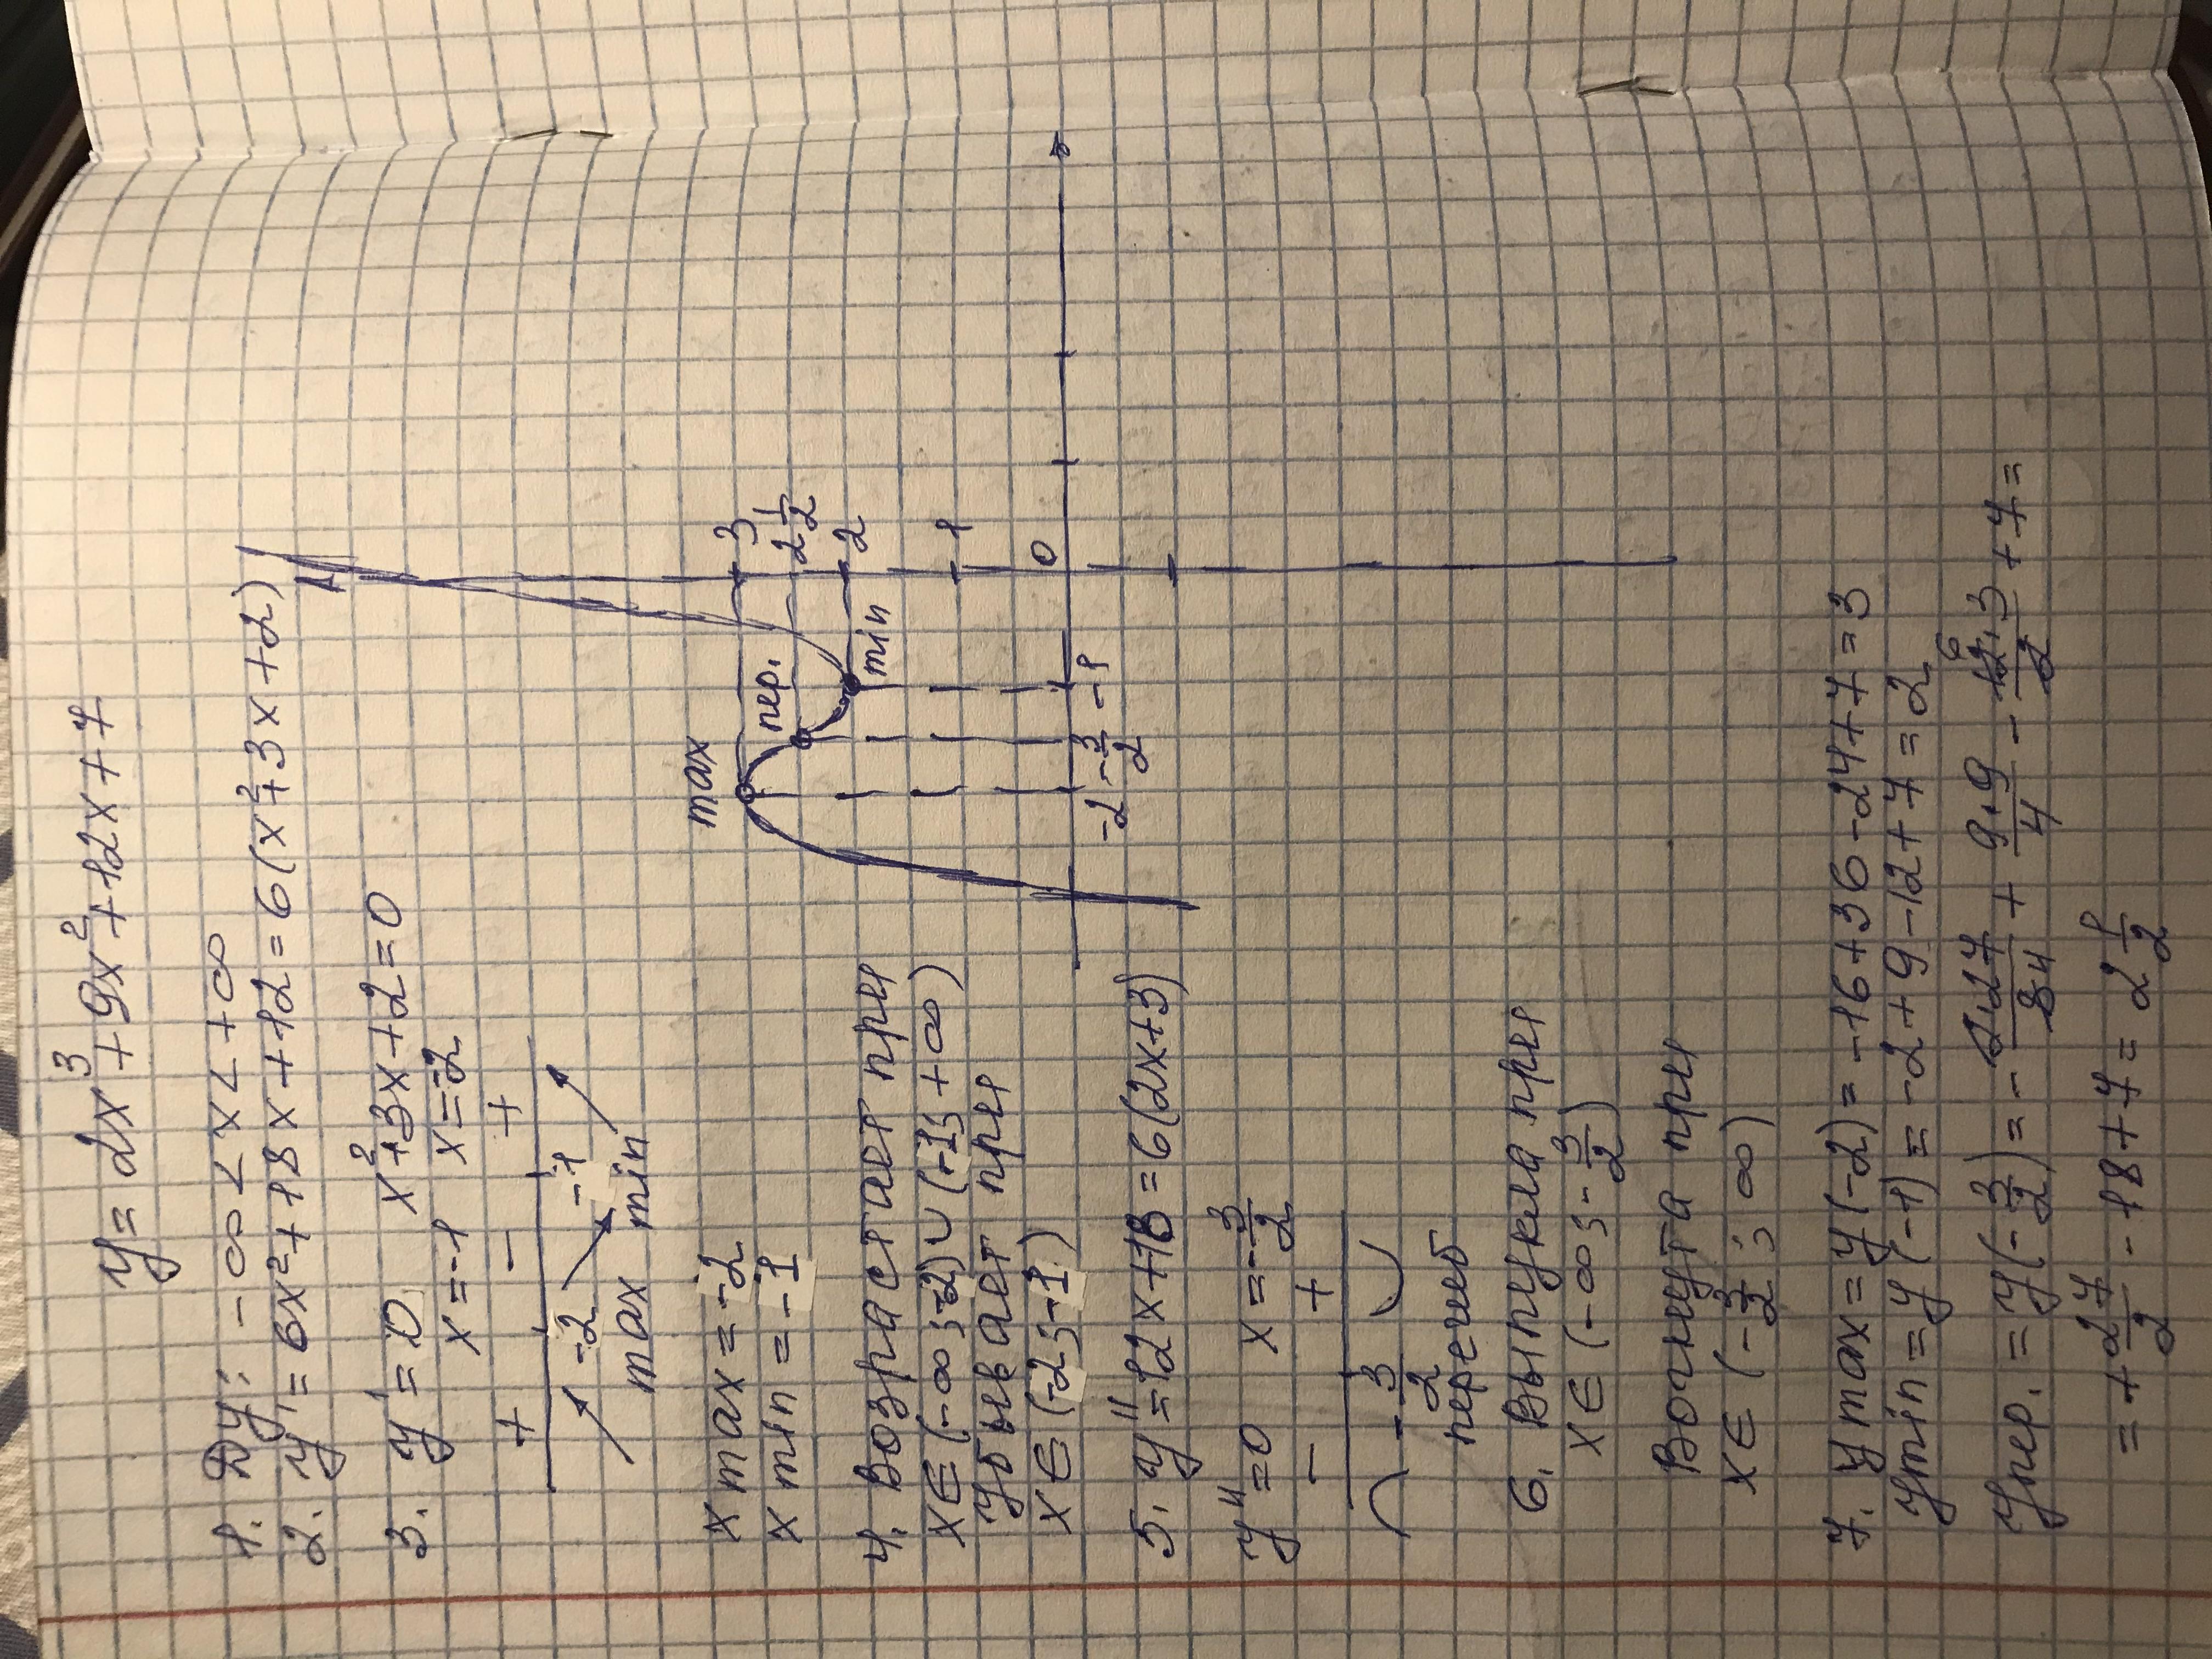 y = 2x³ + 9x² + 12x + 7
1. Dy: -∞ < x < +∞
2. y' = 6x² + 18x + 12 = 6(x² + 3x + 2)
3. y' = 0 x² + 3x + 2 = 0
x = -1 x = -2
+ - +
-2 -1
max min
x max = -2
x min = -1
4. Возрастает при
x ∈ (-∞; -2) ∪ (-1; +∞)
Убывает при
x ∈ (-2; -1)
5. y'' = 12x + 18 = 6(2x+3)
y'' = 0 x = -3/2
- +
-3/2
перегиб
6. Выпукла при
x ∈ (-∞; -3/2)
Вогнута при
x ∈ (-3/2; ∞)
7. y max = y(-2) = -16 + 36 - 24 + 7 = 3
y min = y(-1) = -2 + 9 - 12 + 7 = 2
y пер. = y(-3/2) = - 2·27/8 4 + 9·9/4 - 12·3/2 6 + 7 =
= + 27/2 - 18 + 7 = 2 1/2
max
пер.
min
3
2 1/2
2
1
0
-2 -3/2 -1